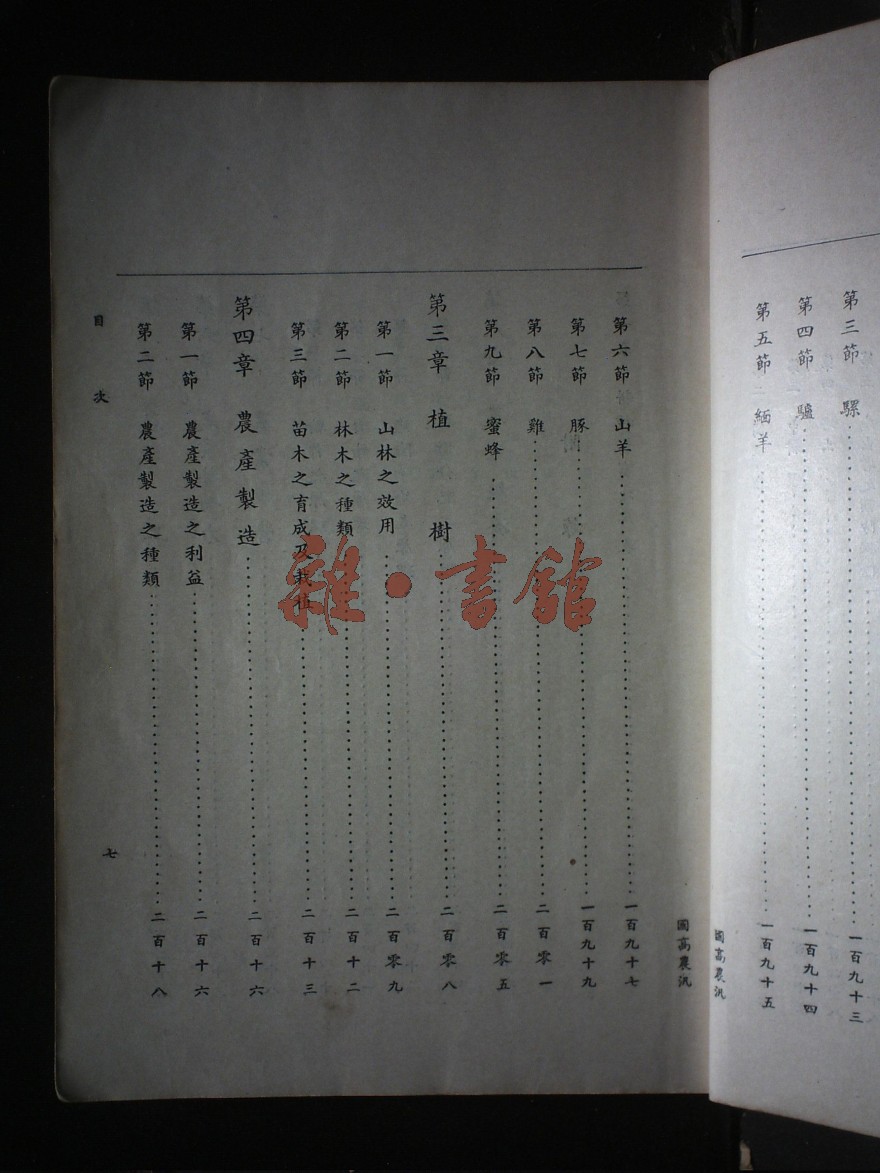 第三節 騾……一百九十三
第四節 驢……一百九十四
第五節 緬羊……一百九十五
國高農汎
國高農汎
第六節 山羊……一百九十七
第七節 豚……一百九十九
第八節 雞……二百零一
第九節 蜜蜂……二百零五
第三章 植樹……二百零八
第一節 山林之效用……二百零九
第二節 林木之種類……二百十二
第三節 苗木之育成及栽植……二百十三
第四章 農產製造……二百十六
第一節 農產製造之利益……二百十六
第二節 農產製造之種類……二百十八
目次
七
雜·書館